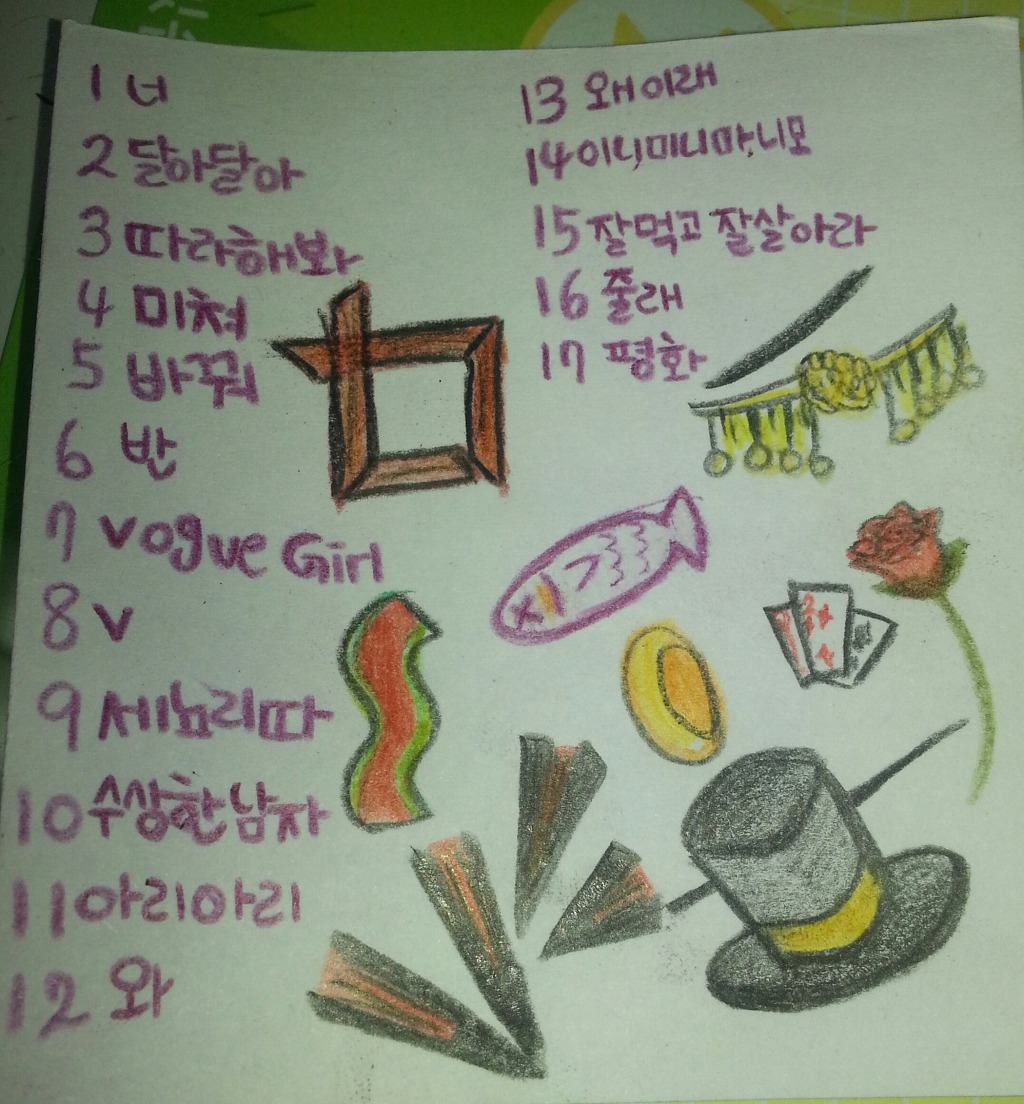 1 너
2 달아달아
3 따라해봐
4 미쳐
5 바꿔
6 반
7 Vogue Girl
8 V
9 세뇨리따
10 수상한남자
11 아리아리
12 와
13 왜이래
14 이니미니마니모
15 잘먹고 잘살아라
16 줄래
17 평화